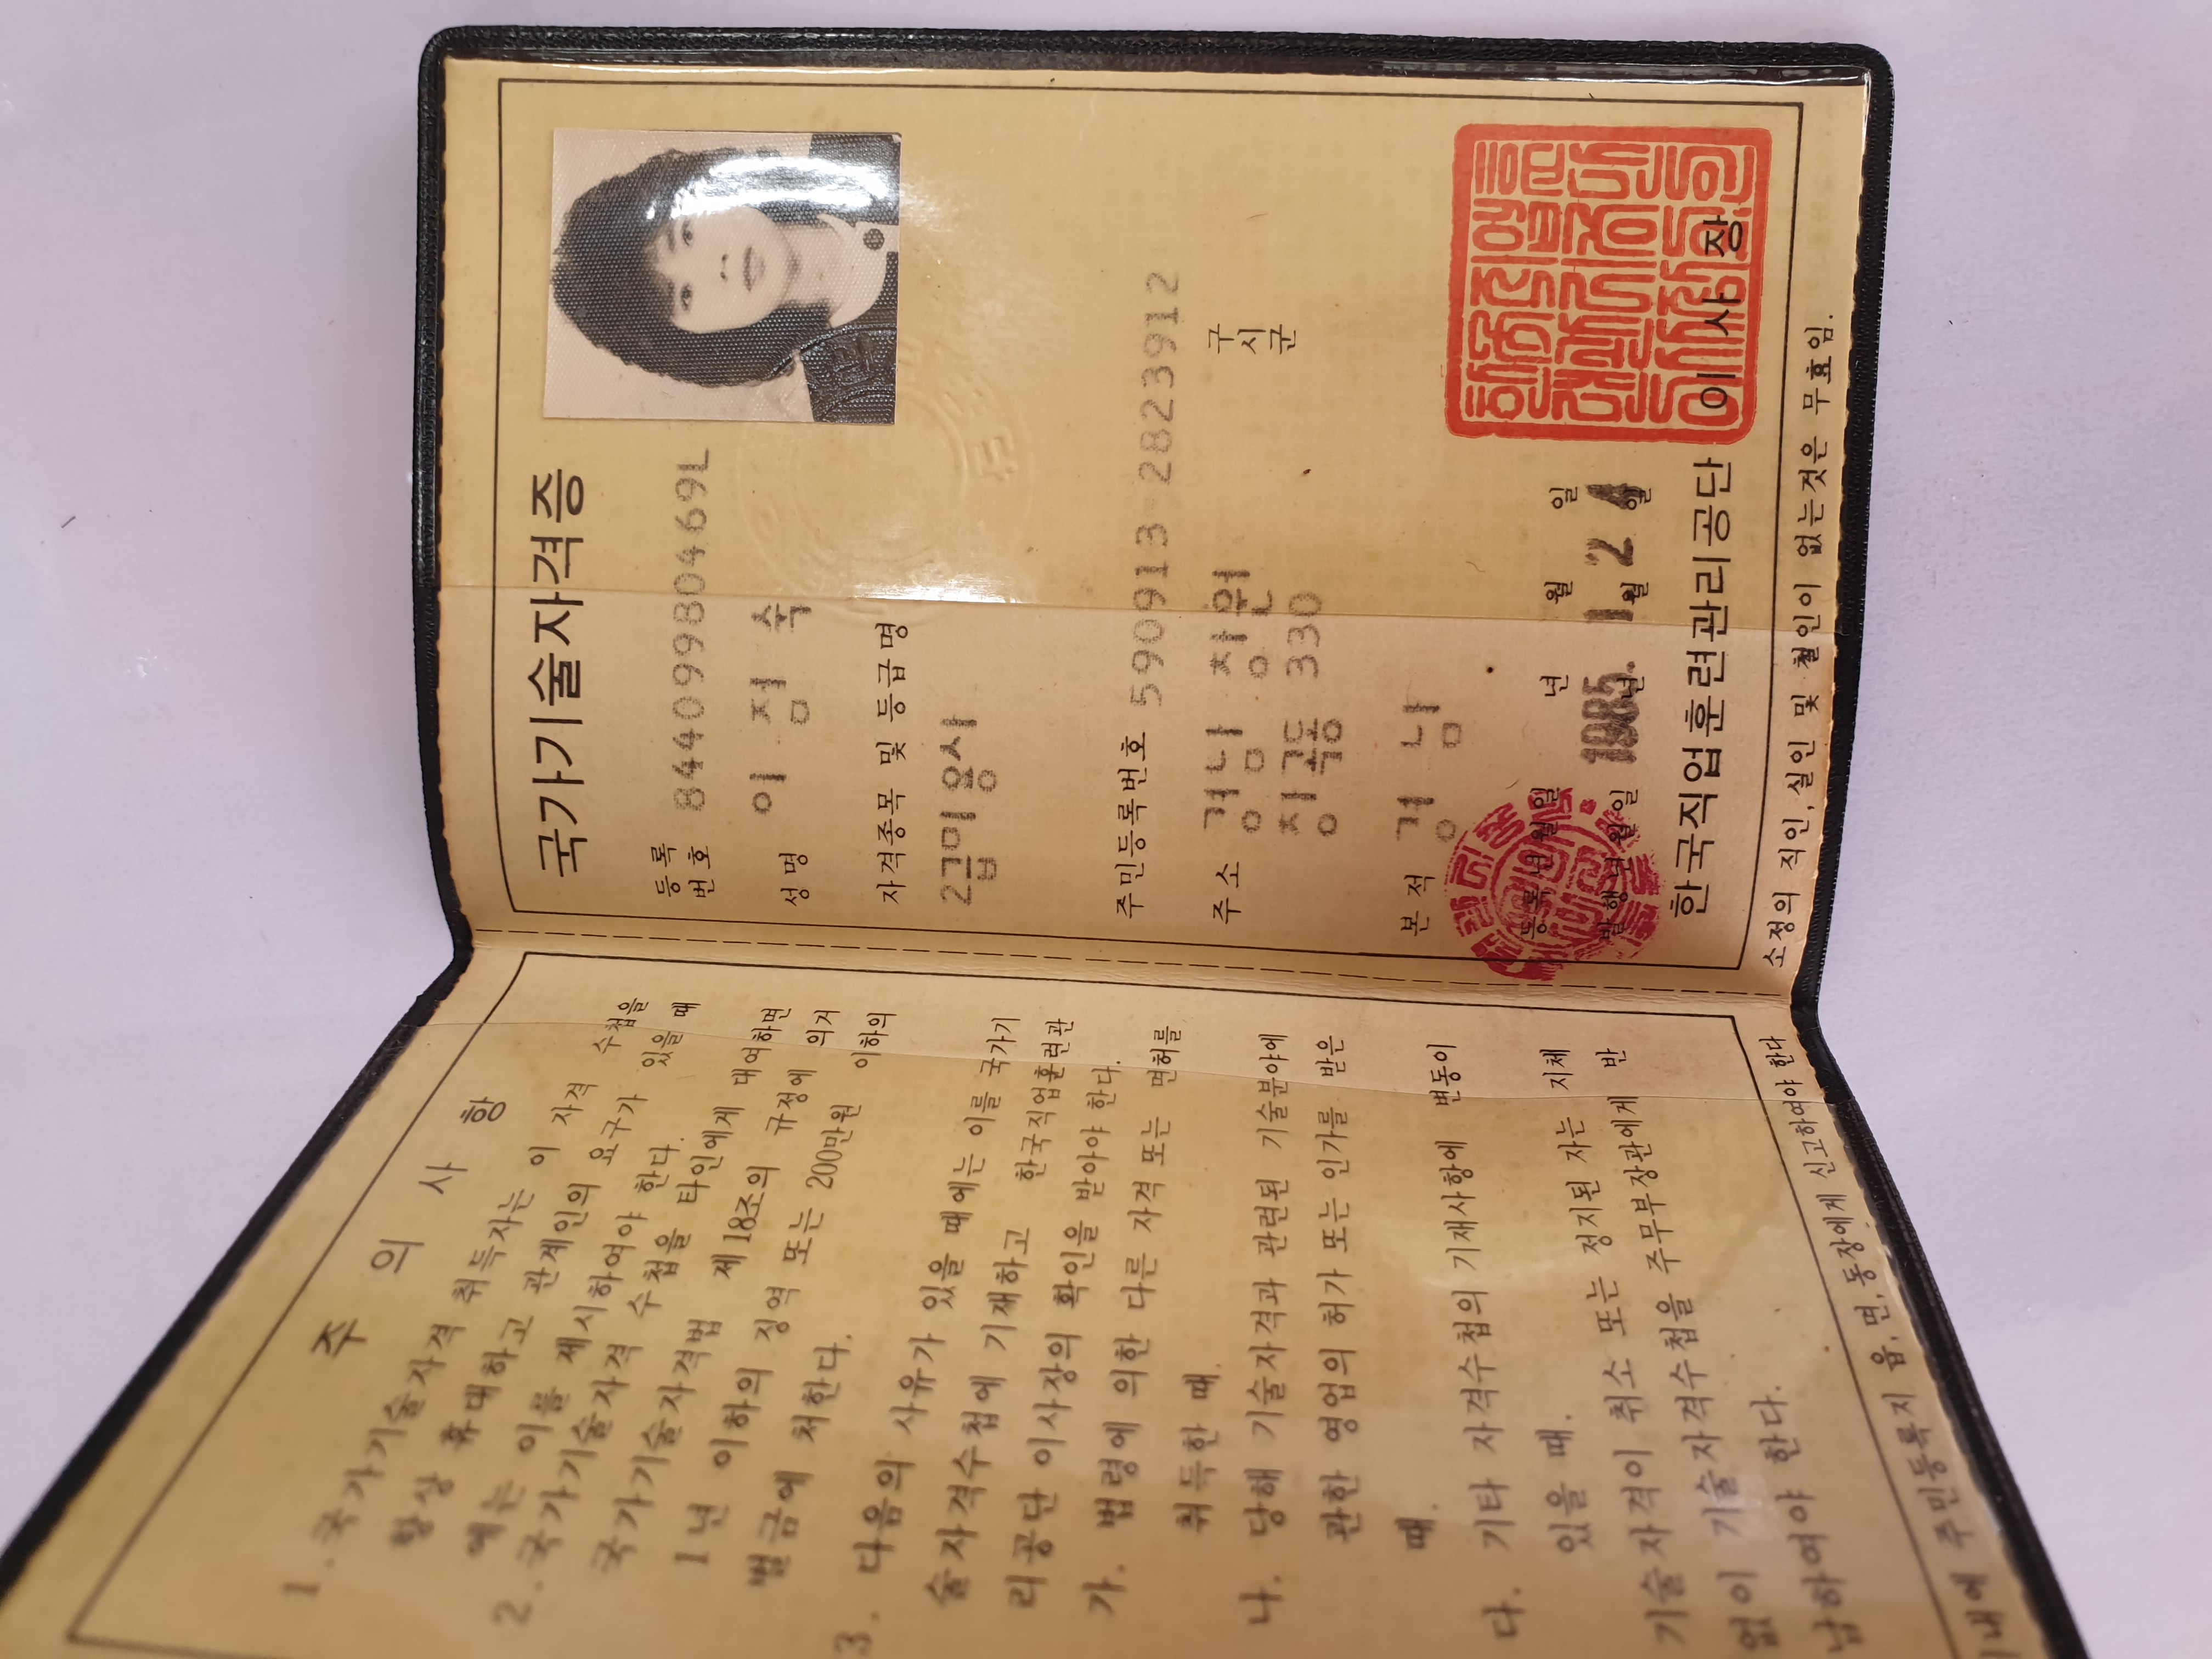 국가기술자격증
등록번호 84409980469L
성명 이 점 숙
자격종목 및 등급명
2급미용사
주민등록번호 590913 2823912
주소 경남 창원 구시군
지귀동 330
본적 경 남
등록년월일 년 월 일
발행년월일 1985년 1월 21일
한국직업훈련관리공단 이사장
소정의 직인, 실인 및 철인이 없는것은 무효임.
주 의 사 항
1. 국가기술자격 취득자는 이 자격 수첩을
항상 휴대하고 관계인의 요구가 있을 때
에는 이를 제시하여야 한다.
2. 국가기술자격 수첩을 타인에게 대여하면
국가기술자격법 제18조의 규정에 의거
1년 이하의 징역 또는 200만원 이하의
벌금에 처한다.
3. 다음의 사유가 있을 때에는 이를 국가기
술자격수첩에 기재하고 한국직업훈련관
리공단 이사장의 확인을 받아야 한다.
가. 법령에 의한 다른 자격 또는 면허를
취득한 때.
나. 당해 기술자격과 관련된 기술분야에
관한 영업의 허가 또는 인가를 받은
때.
다. 기타 자격수첩의 기재사항에 변동이
있을 때.
기술자격이 취소 또는 정지된 자는 지체
없이 기술자격수첩을 주무부장관에게 반
납하여야 한다.
내에 주민등록지 읍, 면, 동장에게 신고하여야 한다